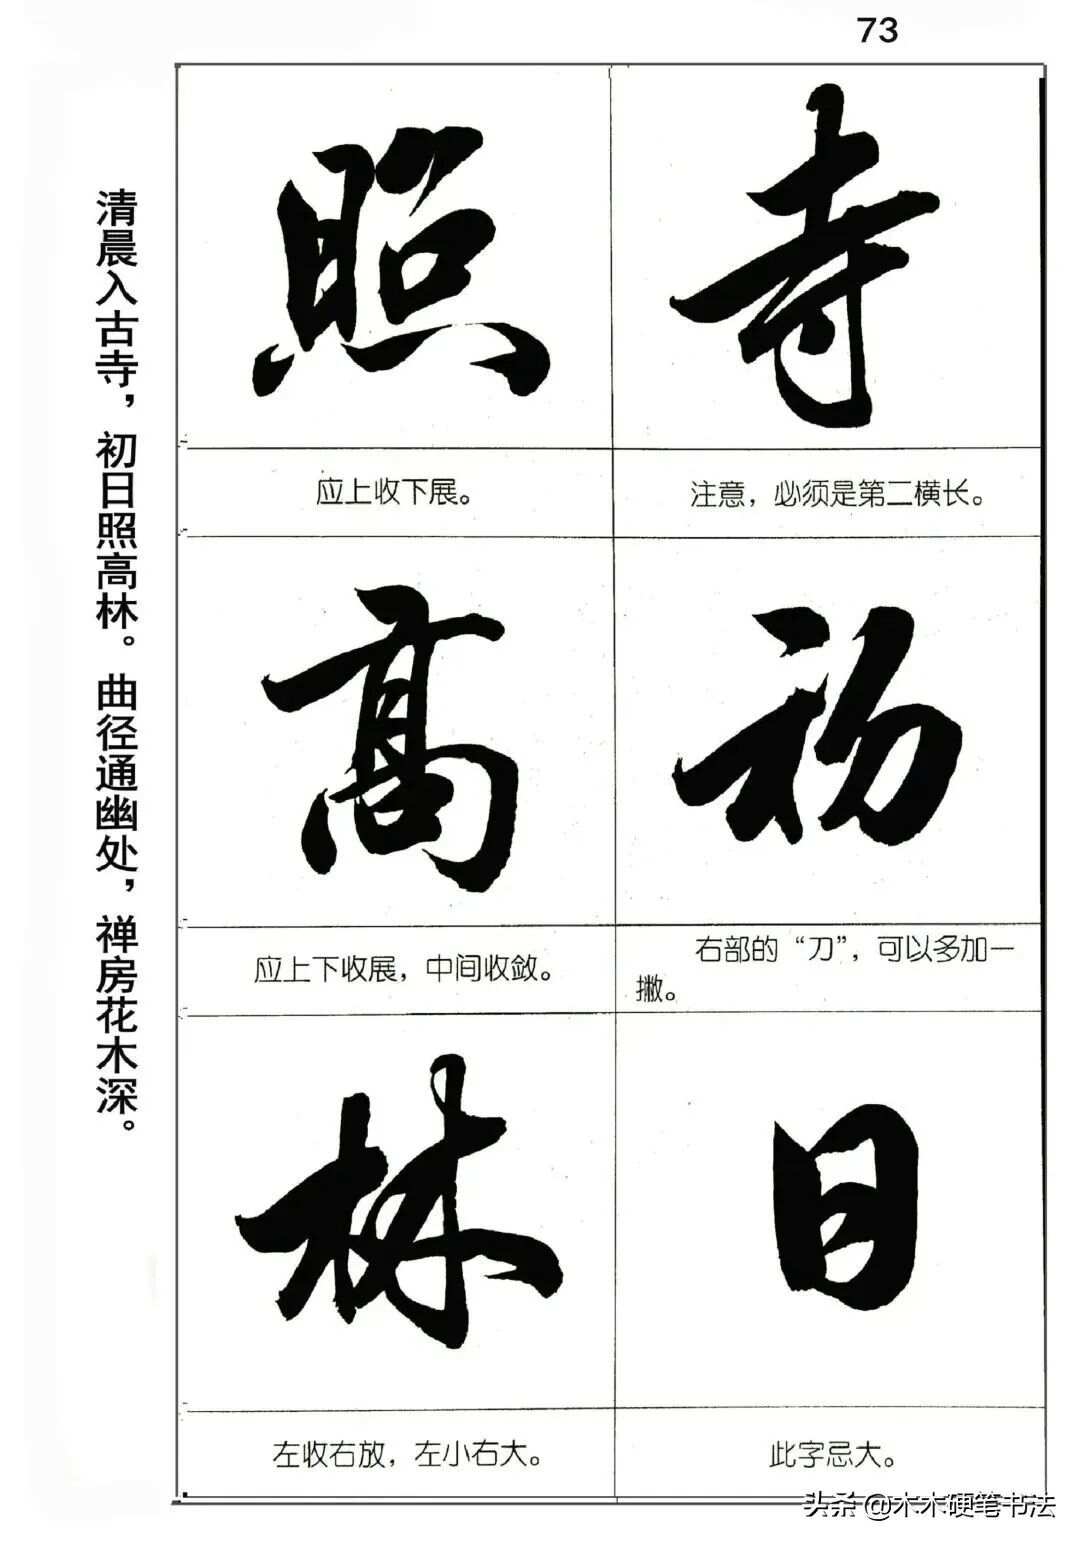 73
清晨入古寺，初日照高林。曲径通幽处，禅房花木深。
寺
注意，必须是第二横长。
初
右部的“刀”，可以多加一
撇。
日
此字忌大。
照
应上收下展。
高
应上下收展，中间收敛。
林
左收右放，左小右大。
头条 @木木硬笔书法